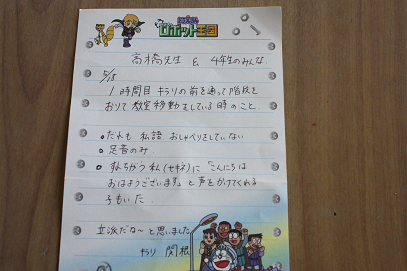 ロボット王国
高橋先生 & 4年生のみんな
5/15
1時間目 キラリの前を通って階段を
おりて教室移動をしている時のこと
・だれも 私語 おしゃべりをしていない
・足音のみ
・すれちがう私(セキネ)に「こんにちは
おはようございます」と声をかけてくれる
子もいた
立派だな〜と思いました
キラリ 関根